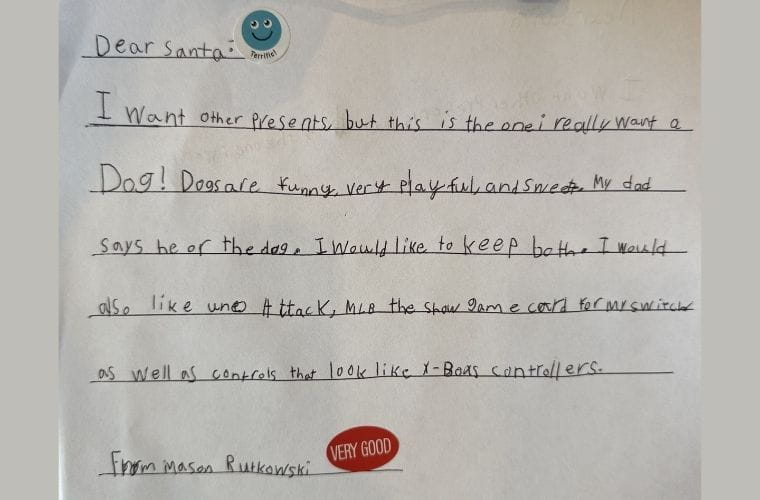 Dear Santa:
Terrific!
I want other presents, but this is the one i really want a
Dog! Dogs are funny, very playful, and sweet. My dad
says he or the dog. I would like to keep both. I would
also like uno Attack, MLB the show game card for my switch
as well as controls that look like X-Boxs controllers.
From Mason Rutkowski
VERY GOOD